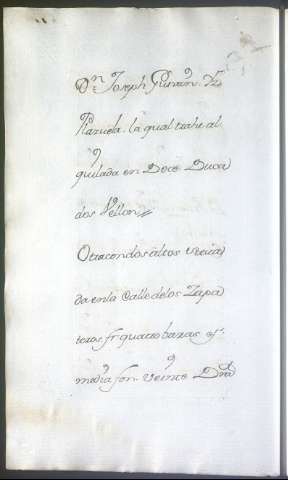 Dn. Joseph Guzmn. de
Plazuela. la qual trahe al
quilada en Doce Duca
dos Vellon
Otra con dos altos situa
da en la Calle de los Zapa
teros fr. quatro baras y
media fon. veinte